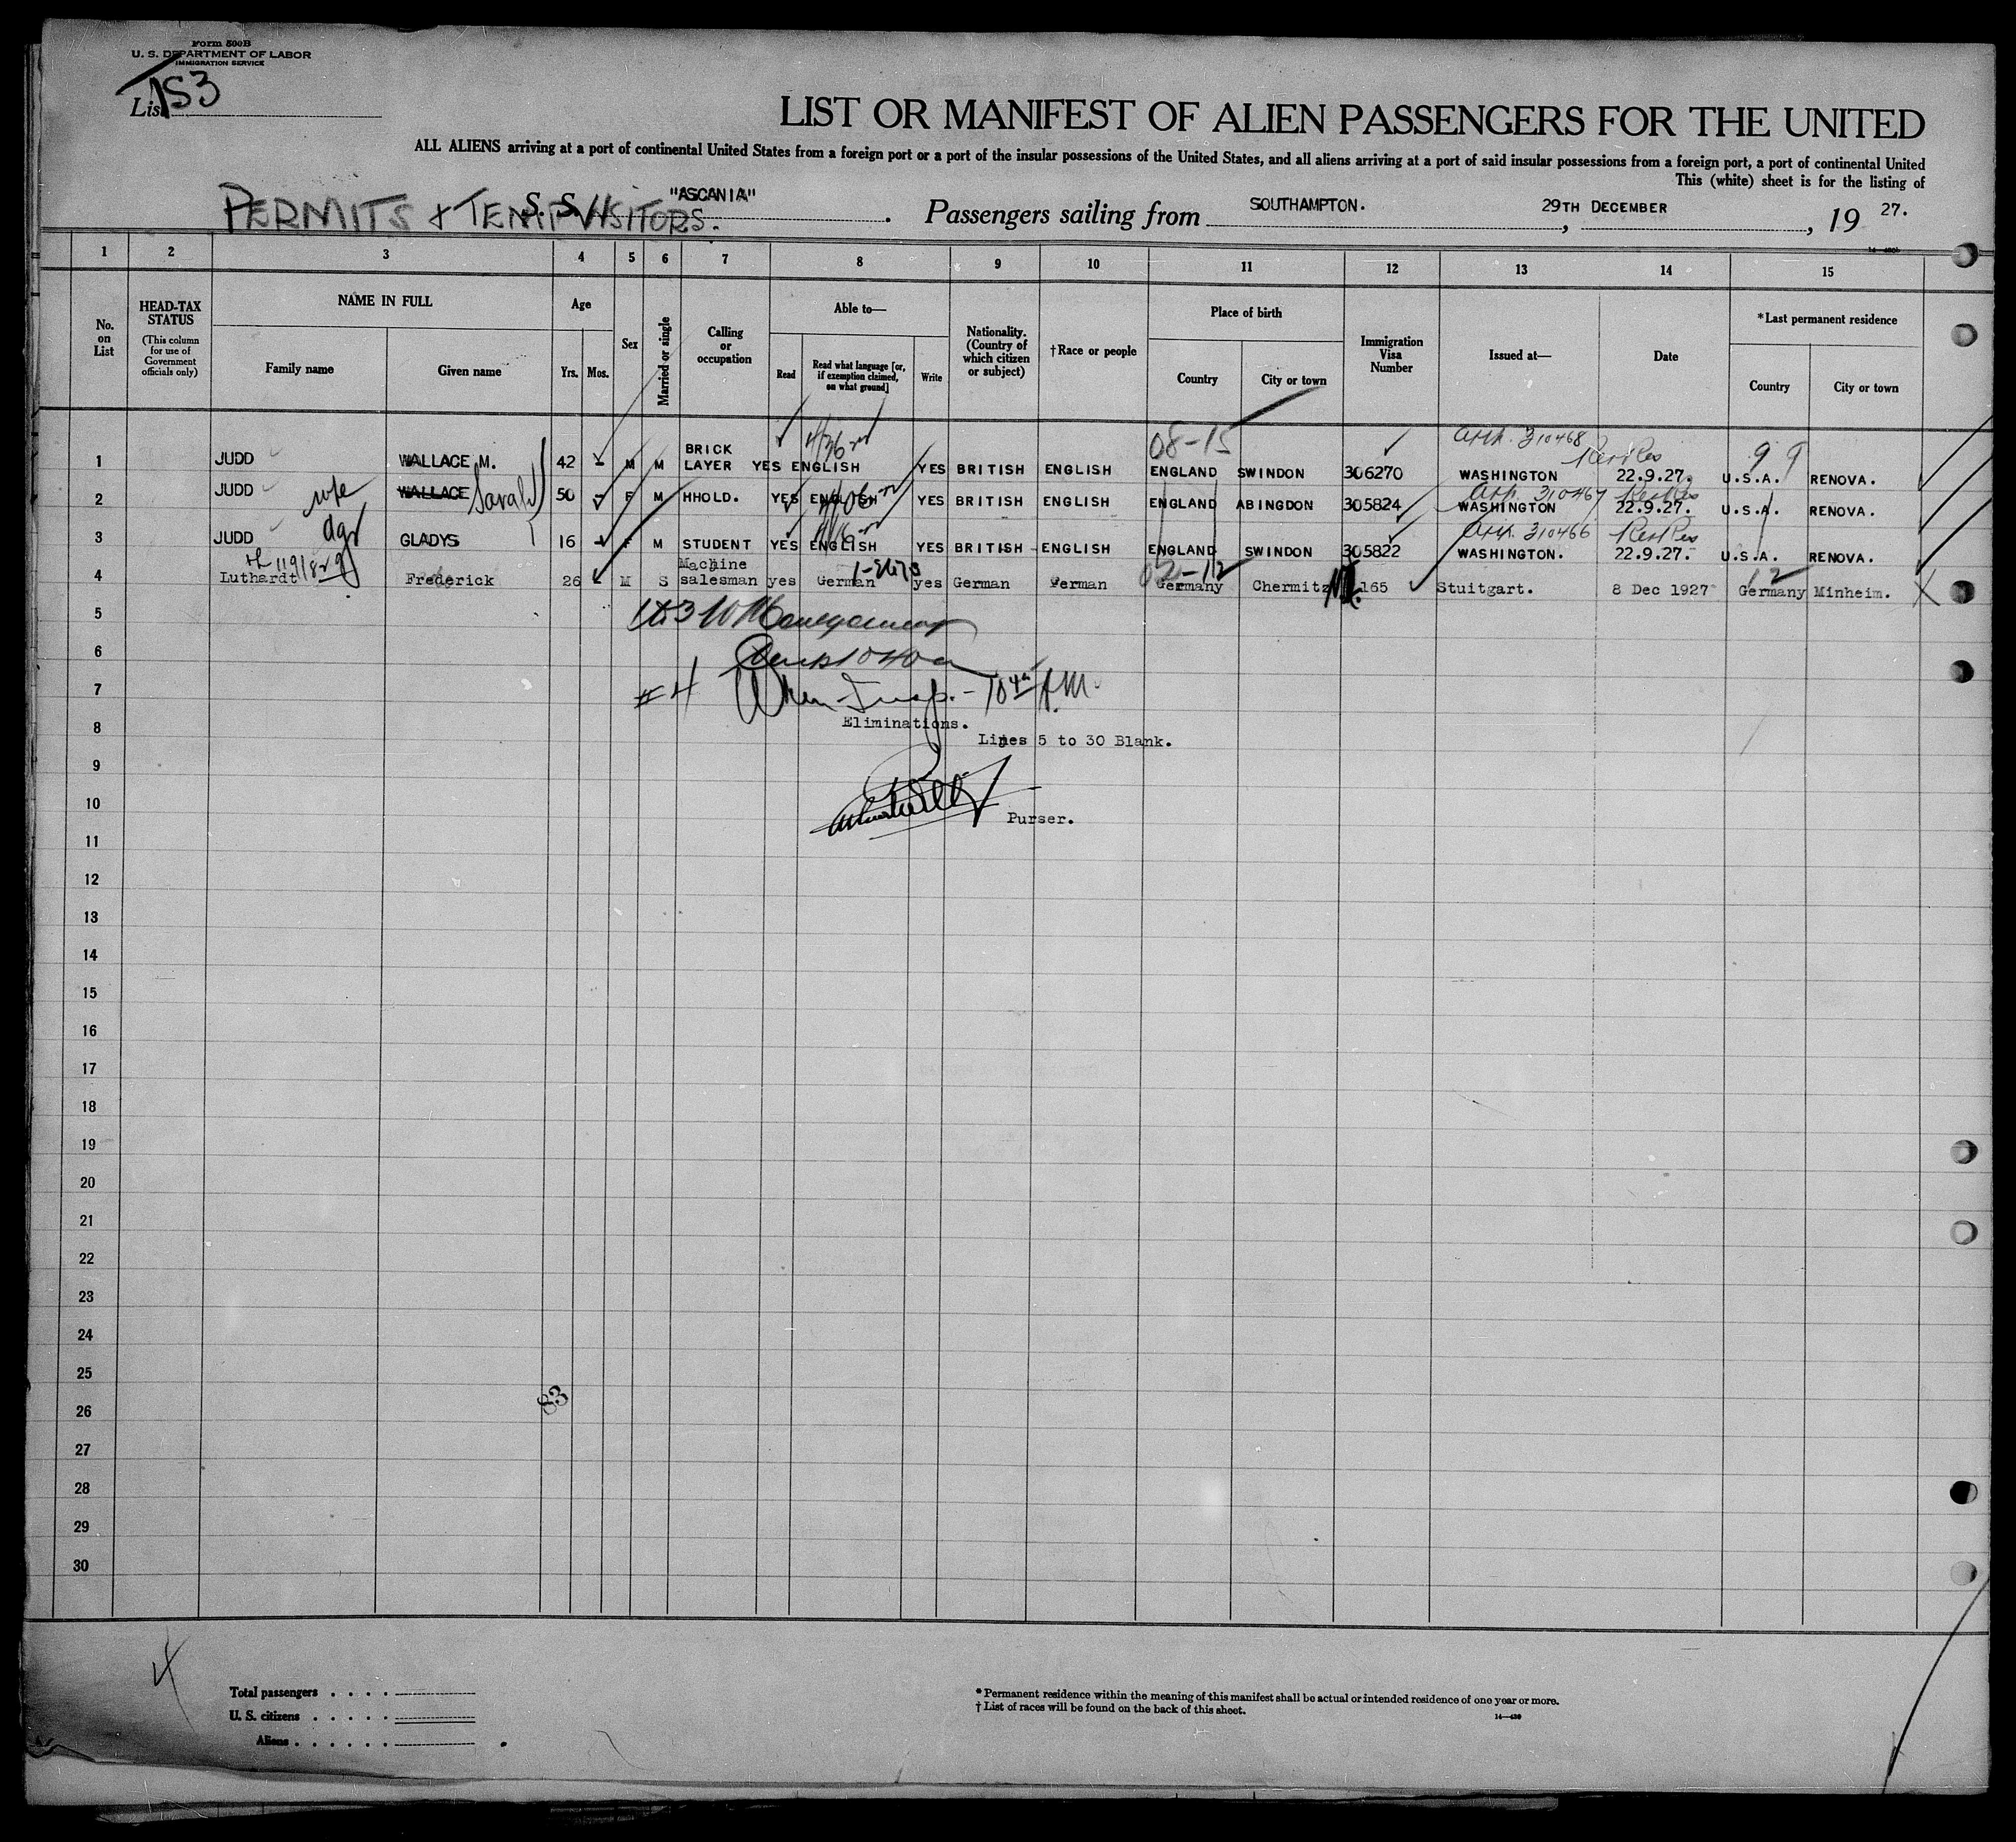 Form 500B
U. S. DEPARTMENT OF LABOR
IMMIGRATION SERVICE
List 153
LIST OR MANIFEST OF ALIEN PASSENGERS FOR THE UNITED
ALL ALIENS arriving at a port of continental United States from a foreign port or a port of the insular possessions of the United States, and all aliens arriving at a port of said insular possessions from a foreign port, a port of continental United
This (white) sheet is for the listing of
PERMITS & TEMP VISITORS.
S. S. "ASCANIA" . Passengers sailing from SOUTHAMPTON. , 29TH DECEMBER , 19 27.
1 2 3 4 5 6 7 8 9 10 11 12 13 14 15
No. on List
HEAD-TAX STATUS
(This column for use of Government officials only)
NAME IN FULL
Family name Given name
Age
Yrs. Mos.
Sex
Married or single
Calling or occupation
Able to—
Read
Read what language [or, if exemption claimed, on what ground]
Write
Nationality. (Country of which citizen or subject)
†Race or people
Place of birth
Country City or town
Immigration Visa Number
Issued at—
Date
*Last permanent residence
Country City or town
08-15 310468 9 9
1 JUDD WALLACE M. 42 - M M BRICK LAYER YES ENGLISH YES BRITISH ENGLISH ENGLAND SWINDON 306270 WASHINGTON 22.9.27. U.S.A. RENOVA.
310467
2 JUDD wife WALLACE Sarah 50 F M HHOLD. YES ENGLISH YES BRITISH ENGLISH ENGLAND ABINGDON 305824 WASHINGTON 22.9.27. U.S.A. RENOVA.
310466
3 JUDD dgr GLADYS 16 - F M STUDENT YES ENGLISH YES BRITISH ENGLISH ENGLAND SWINDON 305822 WASHINGTON. 22.9.27. U.S.A. RENOVA.
4 Luthardt Frederick 26 M S Machine salesman yes German yes German German Germany Chermitz 165 Stuitgart. 8 Dec 1927 Germany Minheim. X
5
6
7 #4 Insp. - 10 A.M.
Eliminations.
8 Lines 5 to 30 Blank.
9
10
Purser.
11
12
13
14
15
16
17
18
19
20
21
22
23
24
25
83
26
27
28
29
30
4
Total passengers . . . .
U. S. citizens . . . . .
Aliens . . . . . .
* Permanent residence within the meaning of this manifest shall be actual or intended residence of one year or more.
† List of races will be found on the back of this sheet.